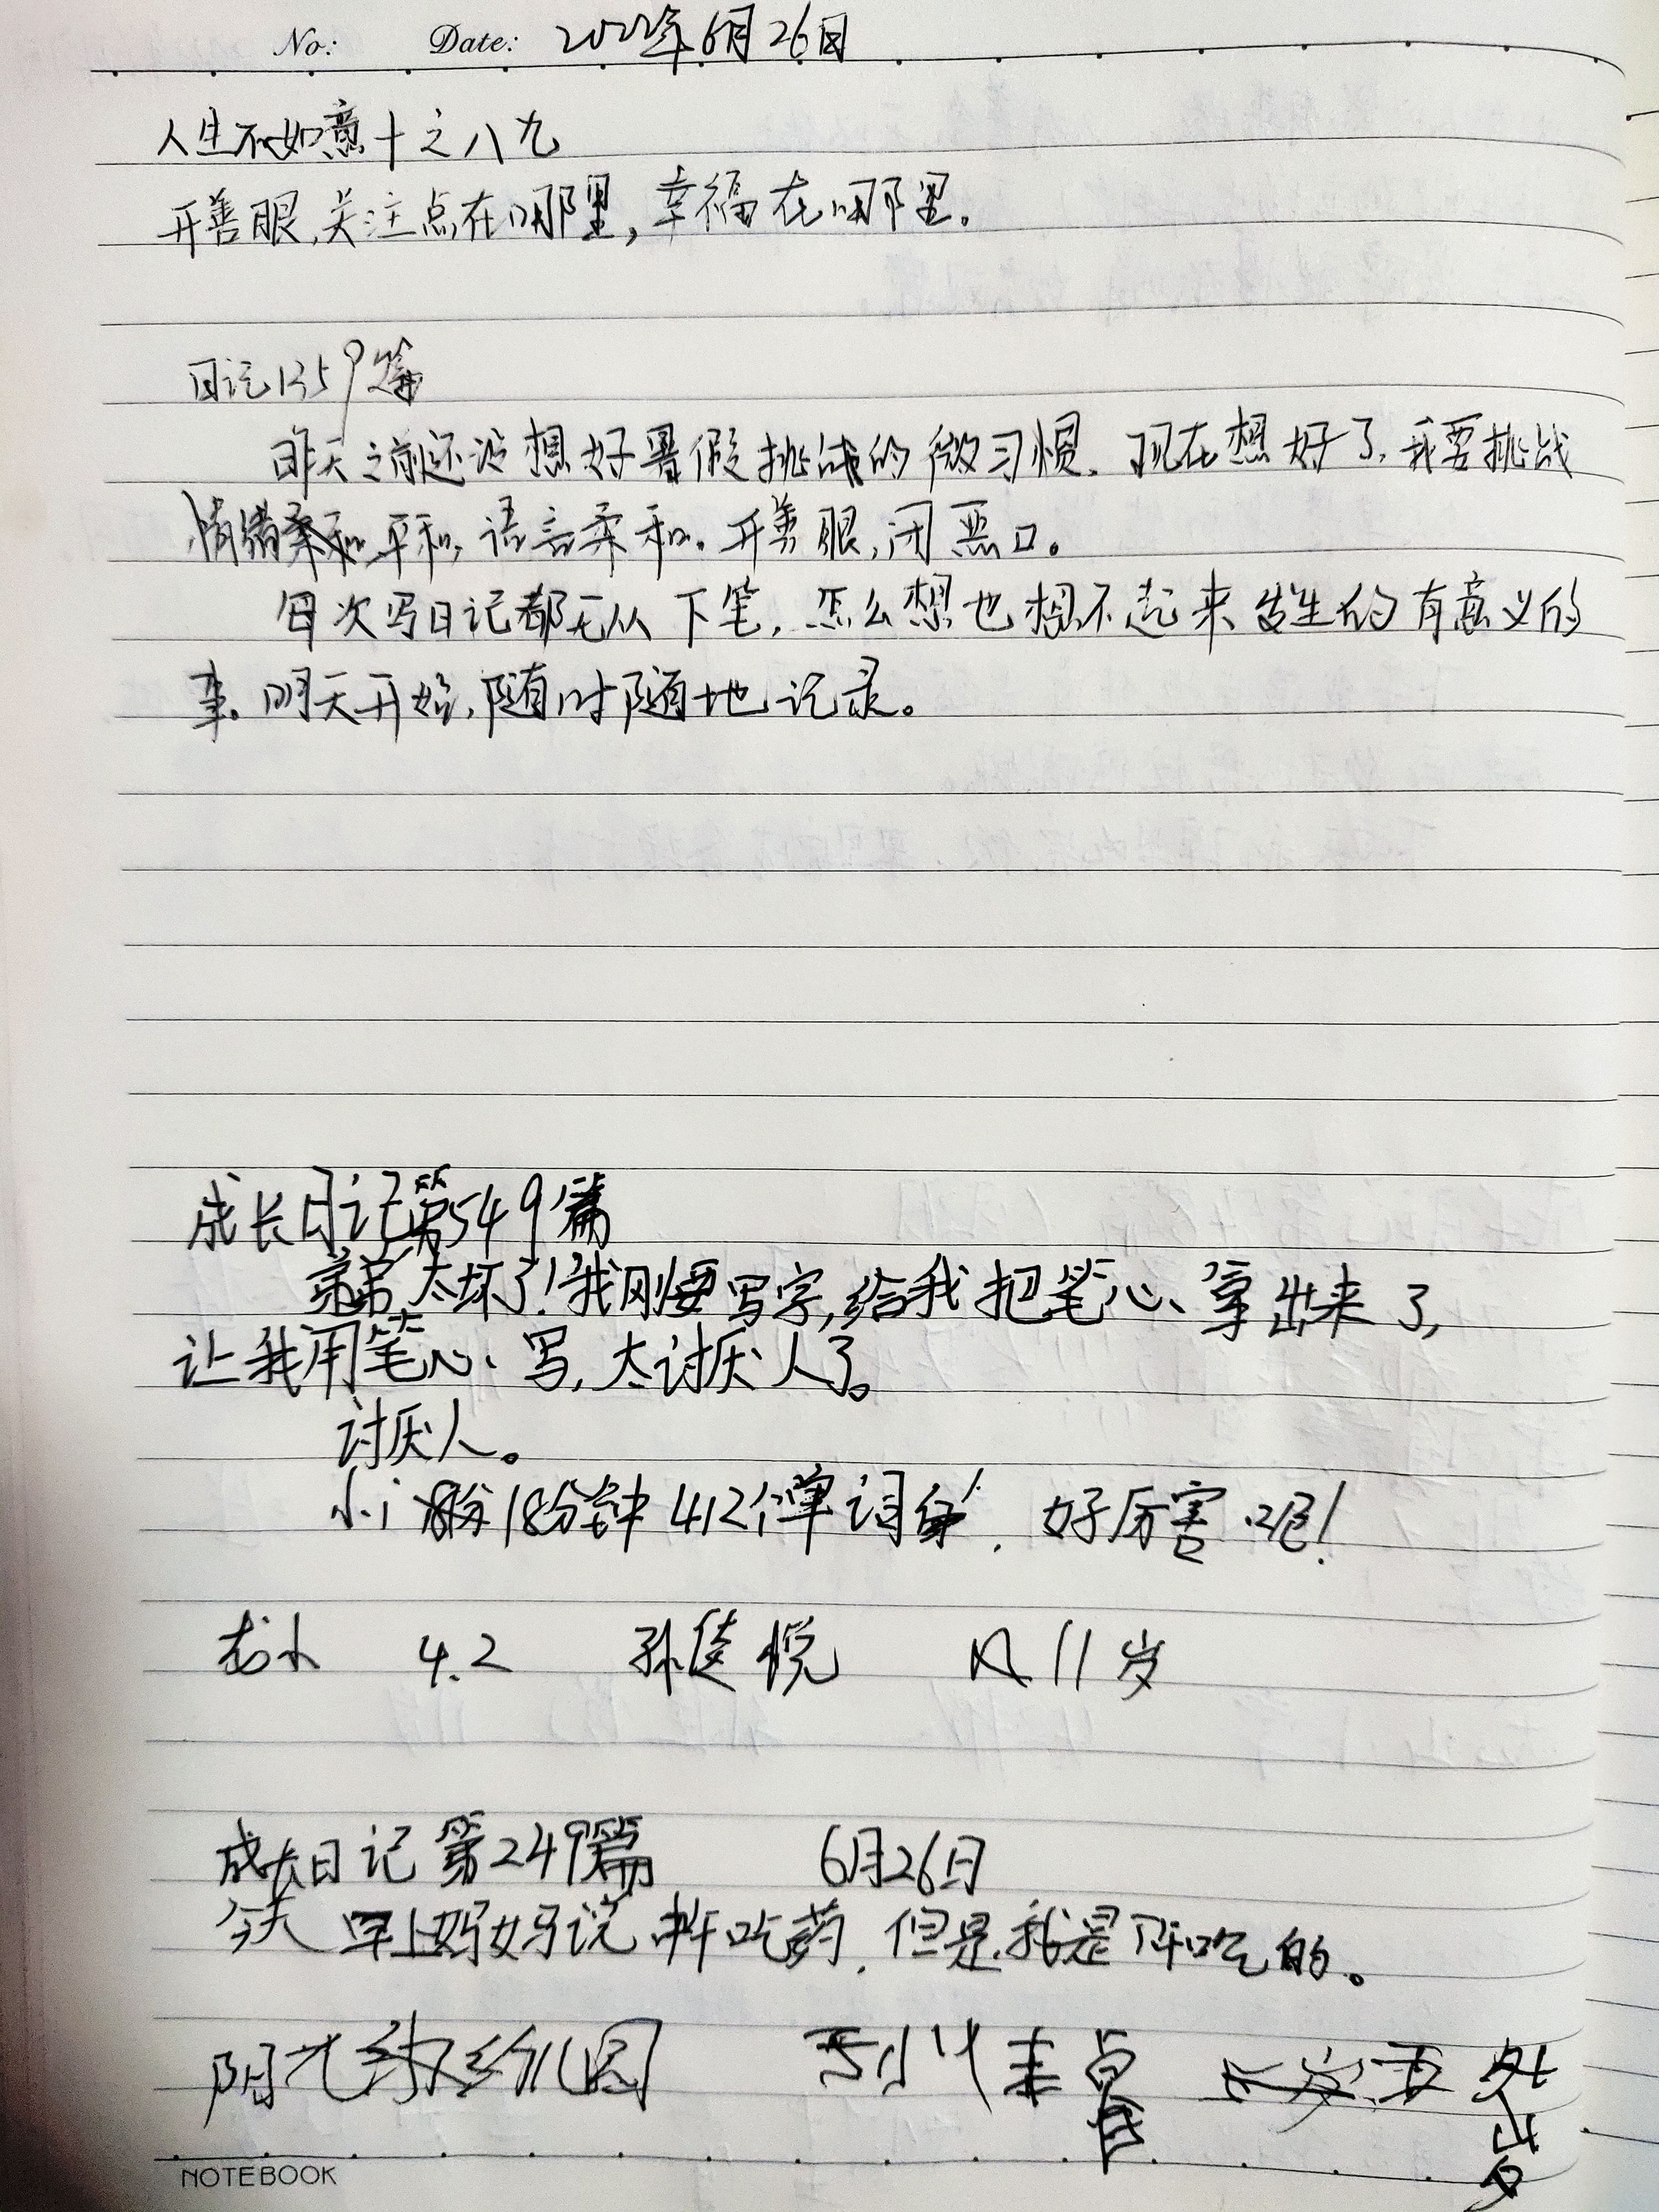 No: Date: 2022年6月26日
人生不如意十之八九
开善眼,关注点在哪里,幸福在哪里。
日记1359篇
昨天之前还没想好暑假挑战的微习惯.现在想好了,我要挑战
情绪平和,语言柔和。开善眼,闭恶口。
每次写日记都无从下笔,怎么想也想不起来发生的有意义的
事。明天开始,随时随地记录。
成长日记第549篇
弟弟太坏了!我刚要写字,给我把笔心拿出来了,
让我用笔心写,太讨厌人了。
讨厌人。
18分钟412个单词 好厉害呢!
4.2 孙 悦 11岁
成长日记第249篇 6月26日
今天早上妈妈说 吃药.但是我是 吃的。
阳光 幼儿园
NOTEBOOK